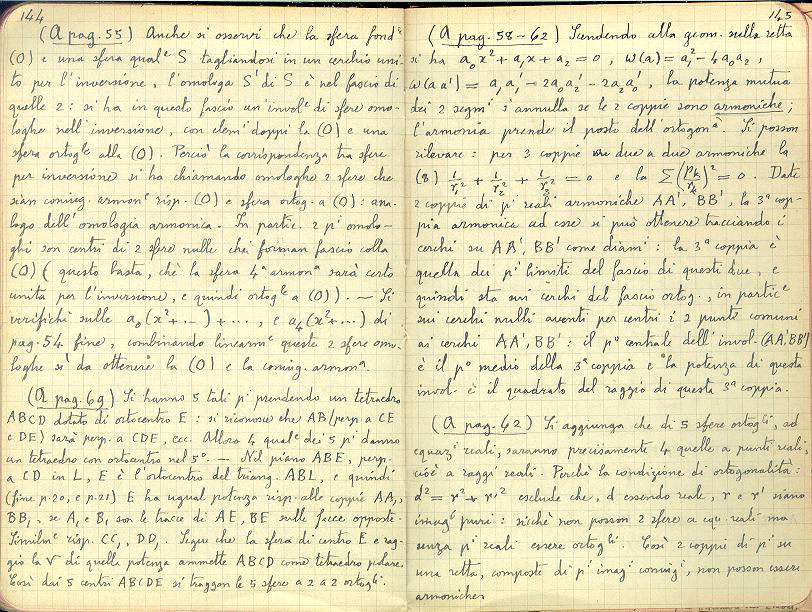 144
(A pag. 55) Anche si osservi che la sfera fond^e
(0) e una sfera qual^e S tagliandosi in un cerchio uni-
to per l'inversione, l'omologa S' di S è nel fascio di
quelle 2: si ha in questo fascio un invol^e di sfere omo-
loghe nell'inversione, con elem^i doppi la (0) e una
sfera ortog^le alla (0). Perciò la corrispondenza tra sfere
per inversione si ha chiamando omologhe 2 sfere che
sian coniug. armon^e risp. (0) e sfera ortog. a (0): ana-
logo dell'omologia armonica. In partic. 2 p^i omolo-
ghi son centri di 2 sfere nulle che forman fascio colla
(0) (questo basta, chè la sfera 4^a armon^a sarà certo
unita per l'inversione, e quindi ortog^le a (0)). — Si
verifichi sulle a₀(x²+...)+...., e a₄(x²+...) di
pag. 54 fine, combinando linearm^e queste 2 sfere omo-
loghe sì da ottenere la (0) e la coniug. armon^a.
(A pag. 69) Si hanno 5 tali p^i prendendo un tetraedro
ABCD dotato di ortocentro E: si riconosce che AB (perp. a CE
e DE) sarà perp. a CDE, ecc. Allora 4 qual^e dei 5 p^i danno
un tetraedro con ortocentro nel 5°. — Nel piano ABE, perp.
a CD in L, E è l'ortocentro del triang. ABL, e quindi
(fine p. 20, e p. 21) E ha ugual potenza risp. alle coppie AA₁,
BB₁, se A₁ e B₁ son le tracce di AE, BE sulle facce opposte.
Similm^e risp. CC₁, DD₁. Segue che la sfera di centro E e rag-
gio la √ di quella potenza ammette ABCD come tetraedro polare.
Così dai 5 centri ABCDE si traggon le 5 sfere a 2 a 2 ortog^li.
145
(A pag. 58-62) Scendendo alla geom. sulla retta
si ha a₀x²+a₁x+a₂=0, ω(a)=a₁²-4a₀a₂,
ω(aa')=a₁a₁'-2a₀a₂'-2a₂a₀', la potenza mutua
dei 2 segm^i s'annulla se le 2 coppie sono armoniche;
l'armonia prende il posto dell'ortogon^à. Si posson
rilevare: per 3 coppie due a due armoniche la
(8) 1/r₁² + 1/r₂² + 1/r₃² = 0 e la Σ(p_k/r_k)² = 0. Date
2 coppie di p^i reali armoniche AA', BB', la 3^a cop-
pia armonica ad esse si può ottenere tracciando i
cerchi su AA', BB' come diam^i: la 3^a coppia è
quella dei p^i limiti del fascio di questi due, e
quindi sta sui cerchi del fascio ortog., in partic^e
sui cerchi nulli aventi per centri i 2 punti comuni
ai cerchi AA', BB': il p^o centrale dell'invol. (AA', BB')
è il p^o medio della 3^a coppia e la potenza di questa
invol. è il quadrato del raggio di questa 3^a coppia.
(A pag. 62) Si aggiunga che di 5 sfere ortog^li, ad
equaz^i reali, saranno precisamente 4 quelle a punti reali,
cioè a raggi reali. Perchè la condizione di ortogonalità:
d²=r²+r'² esclude che, d essendo reale, r e r' siano
imag^i puri: sicchè non posson 2 sfere a equ. reali ma
senza p^i reali essere ortog^li. Così 2 coppie di p^i su
una retta, composti di p^i imag^i coniug^i, non posson essere
armoniche.